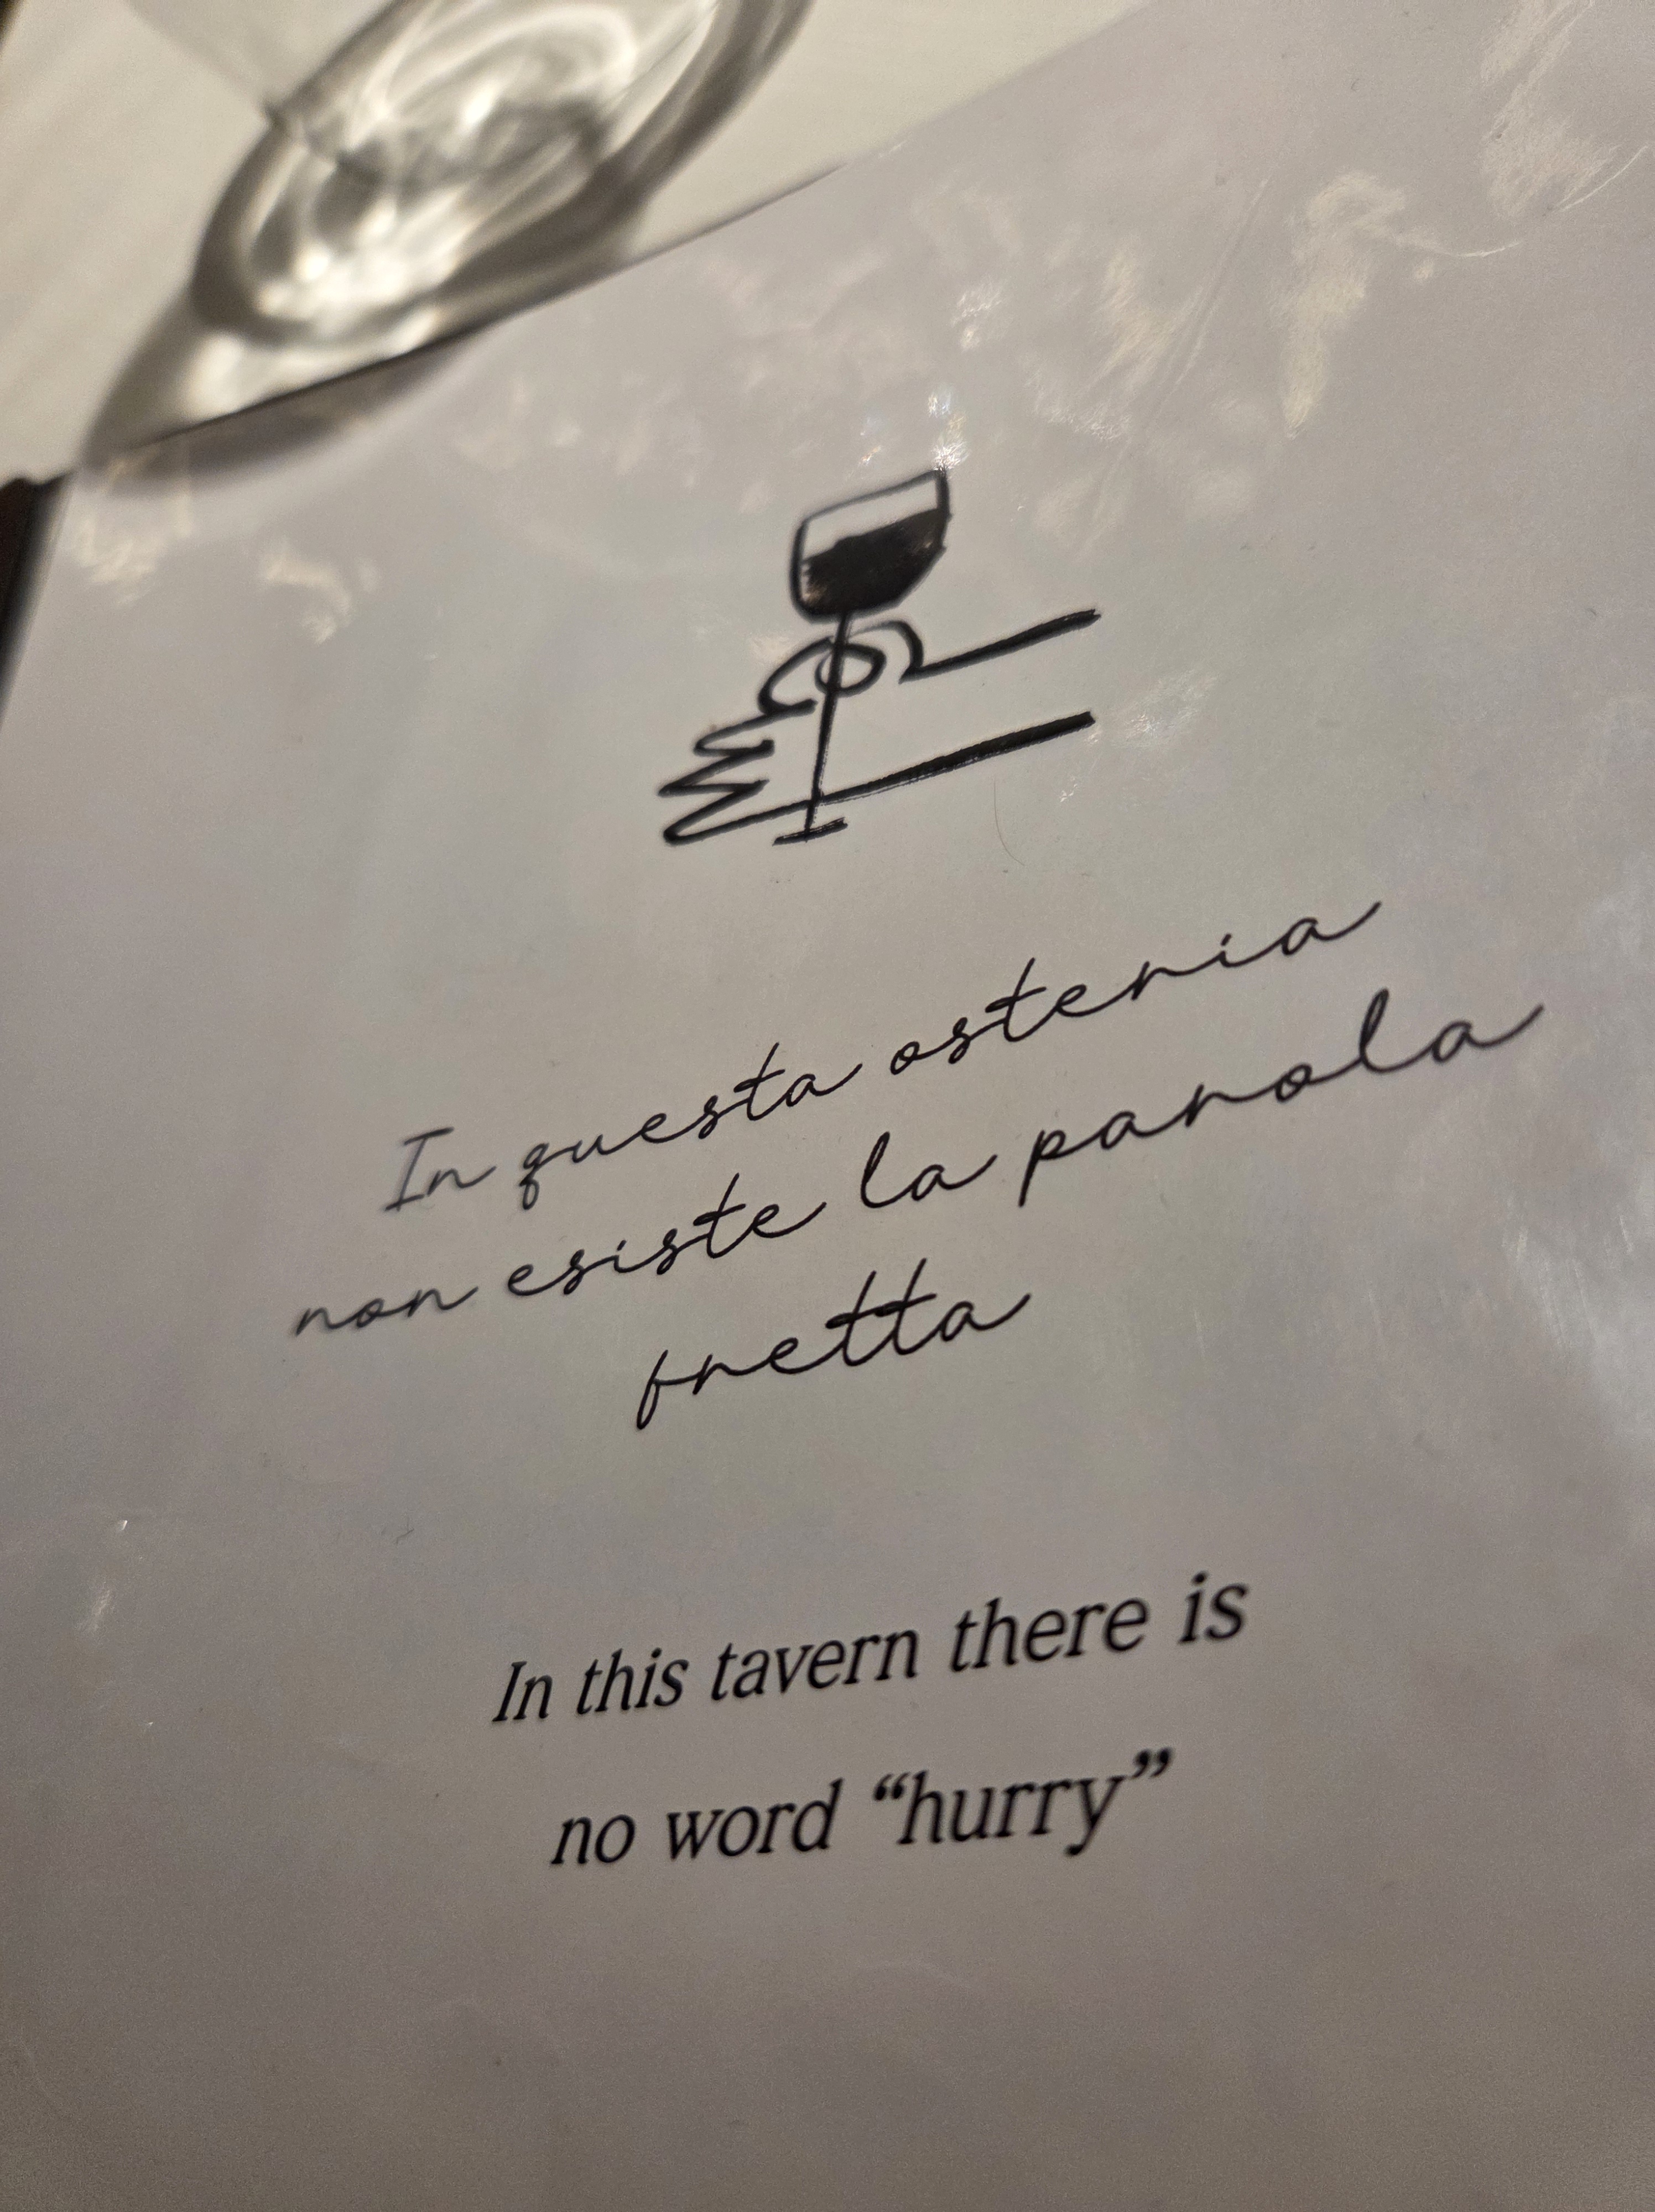 In questa osteria
non esiste la parola
fretta
In this tavern there is
no word “hurry”